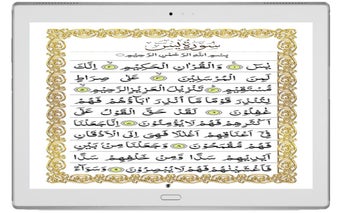 سورة يس
بسم الله الرحمن الرحيم
يس ۝١ وَالْقُرْآنِ الْحَكِيمِ ۝٢ إِنَّكَ
لَمِنَ الْمُرْسَلِينَ ۝٣ عَلَىٰ صِرَاطٍ
مُّسْتَقِيمٍ ۝٤ تَنزِيلَ الْعَزِيزِ الرَّحِيمِ ۝٥
لِتُنذِرَ قَوْمًا مَّا أُنذِرَ آبَاؤُهُمْ فَهُمْ
غَافِلُونَ ۝٦ لَقَدْ حَقَّ الْقَوْلُ عَلَىٰ
أَكْثَرِهِمْ فَهُمْ لَا يُؤْمِنُونَ ۝٧ إِنَّا جَعَلْنَا
فِي أَعْنَاقِهِمْ أَغْلَالًا فَهِيَ إِلَى الْأَذْقَانِ
فَهُم مُّقْمَحُونَ ۝٨ وَجَعَلْنَا مِن بَيْنِ
أَيْدِيهِمْ سَدًّا وَمِنْ خَلْفِهِمْ سَدًّا
فَأَغْشَيْنَاهُمْ فَهُمْ لَا يُبْصِرُونَ ۝٩ وَسَوَاءٌ